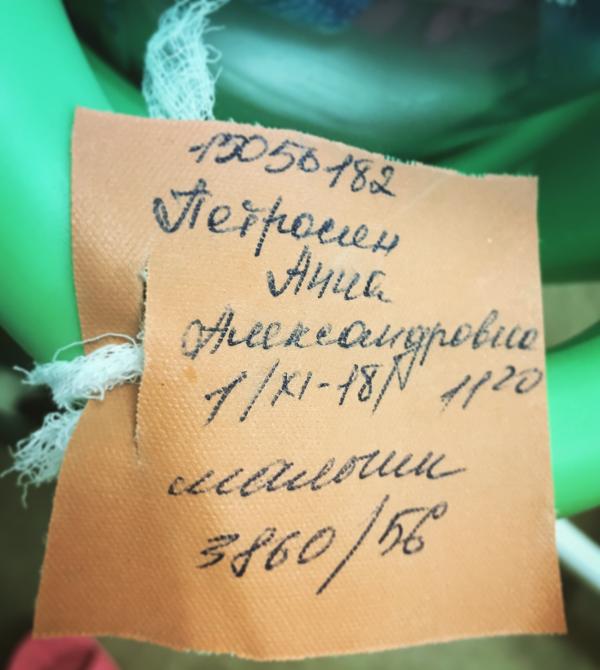 15056182
Петросян
Анна
Александровна
1/XI-18г 11 20
мальчик
3860/56